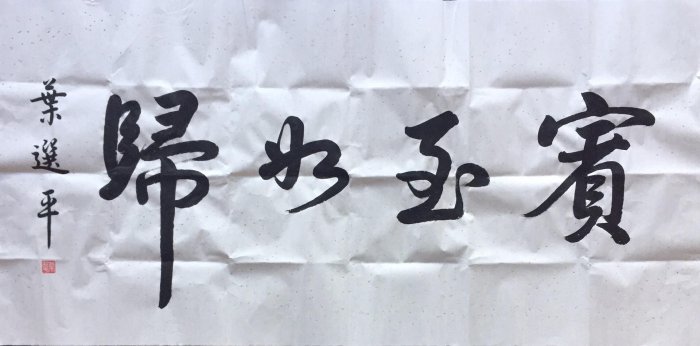 賓至如歸
葉選平